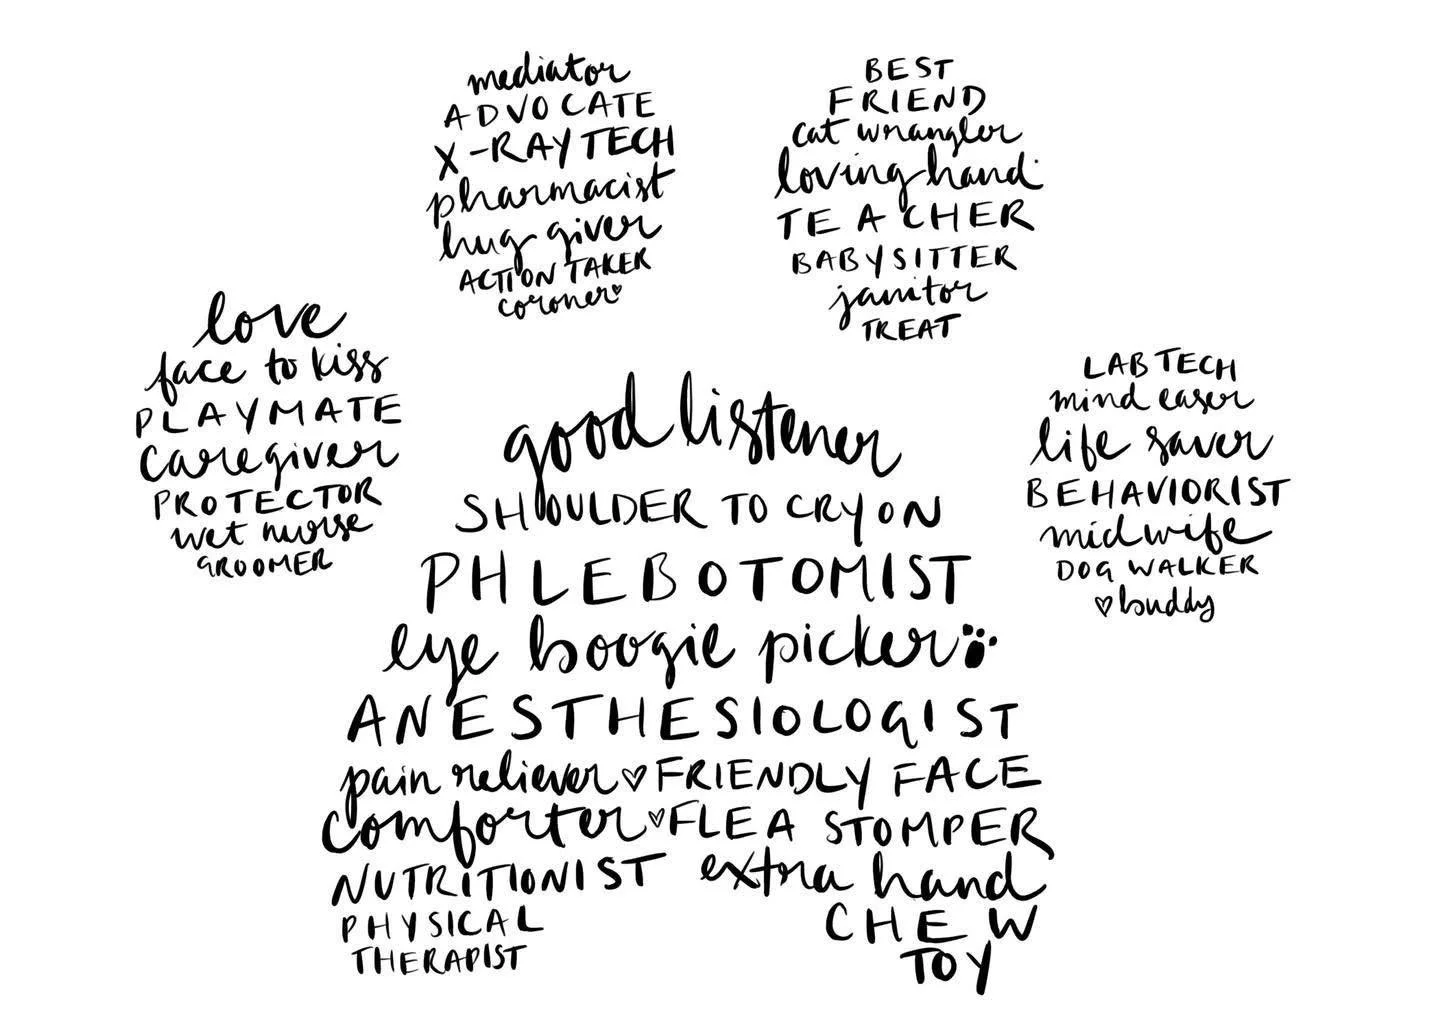 mediator
ADVOCATE
X-RAY TECH
pharmacist
hug giver
ACTION TAKER
coroner
BEST
FRIEND
cat wrangler
loving hand
TEACHER
BABYSITTER
janitor
TREAT
love
face to kiss
PLAYMATE
caregiver
PROTECTOR
wet nurse
GROOMER
LAB TECH
mind easer
life saver
BEHAVIORIST
midwife
DOG WALKER
buddy
good listener
SHOULDER TO CRY ON
PHLEBOTOMIST
eye boogie picker
ANESTHESIOLOGIST
pain reliever FRIENDLY FACE
comforter FLEA STOMPER
NUTRITIONIST extra hand
PHYSICAL
THERAPIST
CHEW
TOY